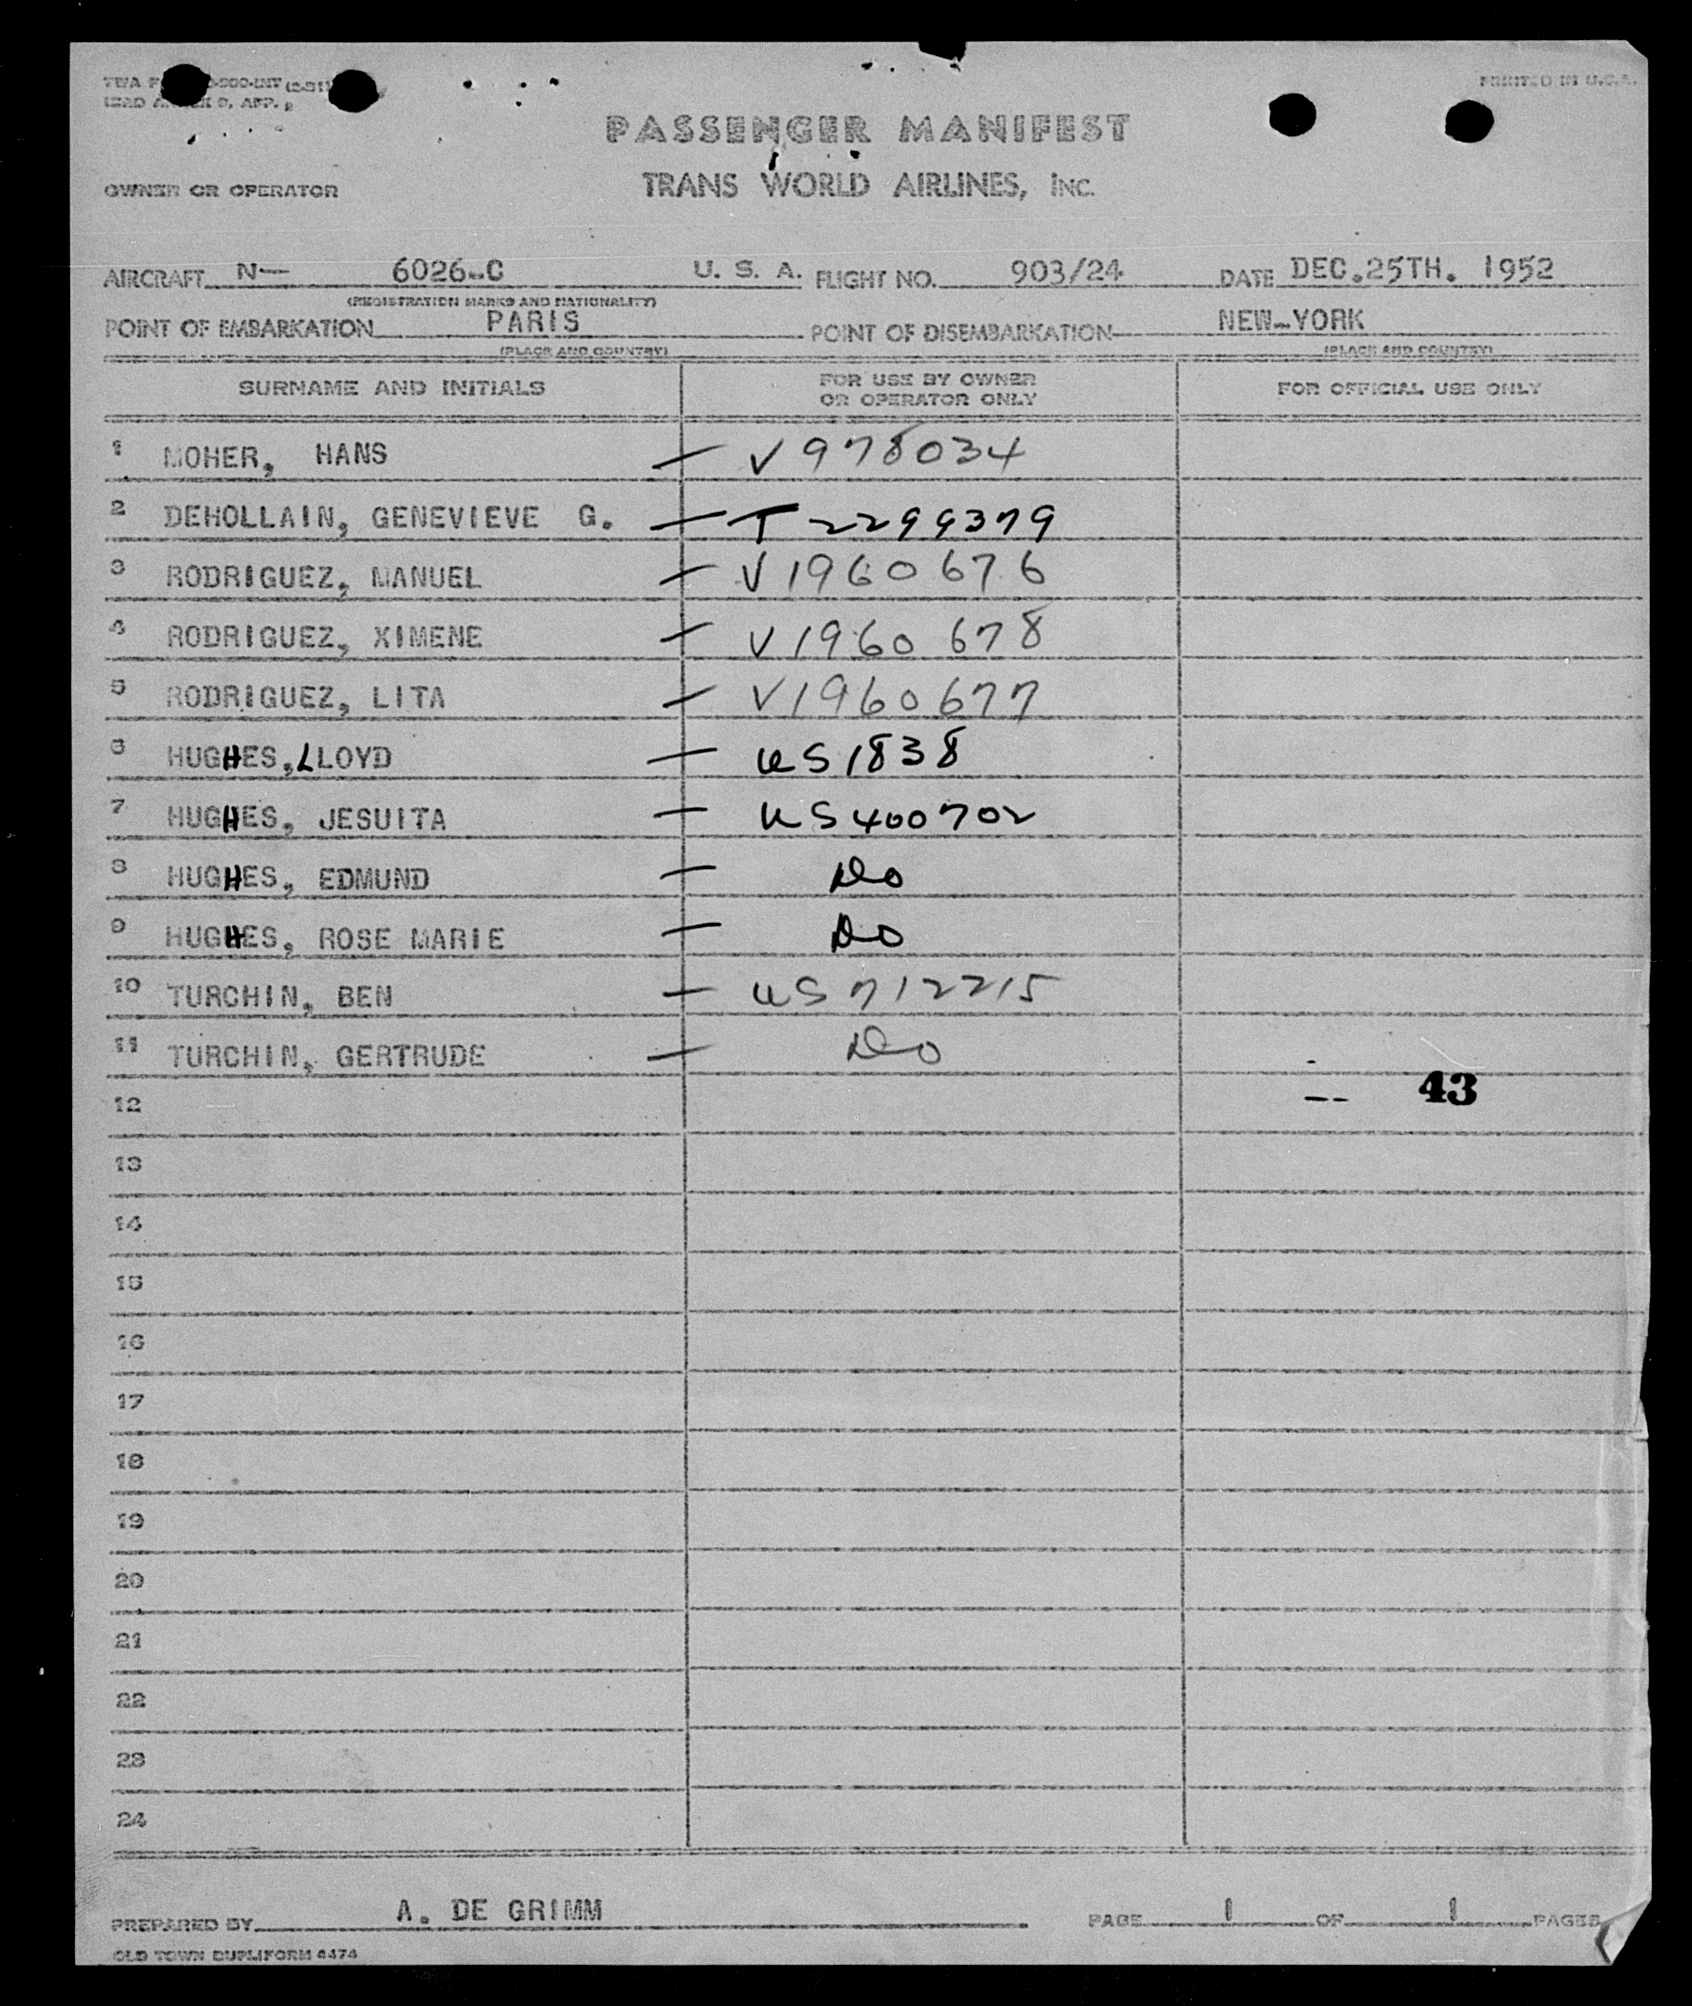 PRINTED IN U.S.A.
PASSENGER MANIFEST
OWNER OR OPERATOR TRANS WORLD AIRLINES, INC.
AIRCRAFT N— 6026-C U. S. A. FLIGHT NO. 903/24 DATE DEC.25TH. 1952
(REGISTRATION MARKS AND NATIONALITY)
POINT OF EMBARKATION PARIS POINT OF DISEMBARKATION NEW-YORK
(PLACE AND COUNTRY) (PLACE AND COUNTRY)
SURNAME AND INITIALS FOR USE BY OWNER OR OPERATOR ONLY FOR OFFICIAL USE ONLY
1 MOHER, HANS — V978034
2 DEHOLLAIN, GENEVIEVE G. — T2299379
3 RODRIGUEZ, MANUEL — V1960676
4 RODRIGUEZ, XIMENE — V1960 678
5 RODRIGUEZ, LITA — V1960677
6 HUGHES, LLOYD — US1838
7 HUGHES, JESUITA — US400702
8 HUGHES, EDMUND — Do
9 HUGHES, ROSE MARIE — Do
10 TURCHIN, BEN — US712215
11 TURCHIN, GERTRUDE — Do
12 -- 43
13
14
15
16
17
18
19
20
21
22
23
24
PREPARED BY A. DE GRIMM PAGE 1 OF 1 PAGES
OLD TOWN DUPLIFORM 4474